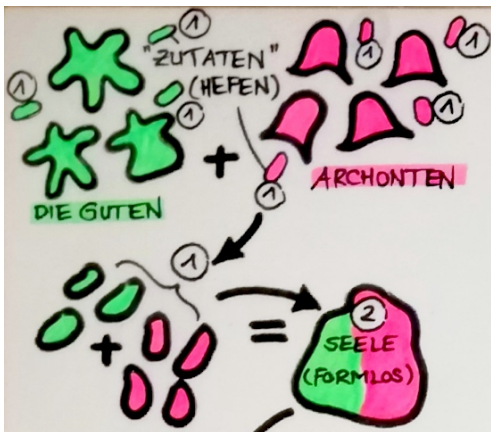 1
"ZUTATEN"
(HEFEN)
1
1
1
1
1
1
+
DIE GUTEN
ARCHONTEN
1
+
=
2
SEELE
(FORMLOS)